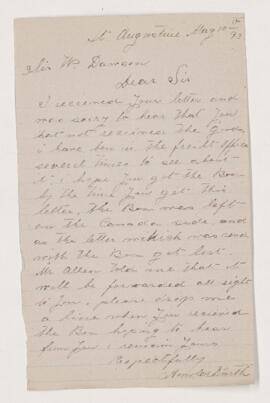 St Augustine May 10th 93
Sir Wm Dawson
Dear Sir
I received your letter and
was sorry to hear that you
had not received the goods
i have been in the freight office
several times to see about
it i hope you got the Box
by the time you get this
letter. the Box was left
on the Canada side and
as the letter which was send
with the Box got lost.
Mr Allen told me that it
will be forwarded all right
to you, please drop me
a line when you received
the Box hoping to hear
from you i remain yours
Respectfully
Smith